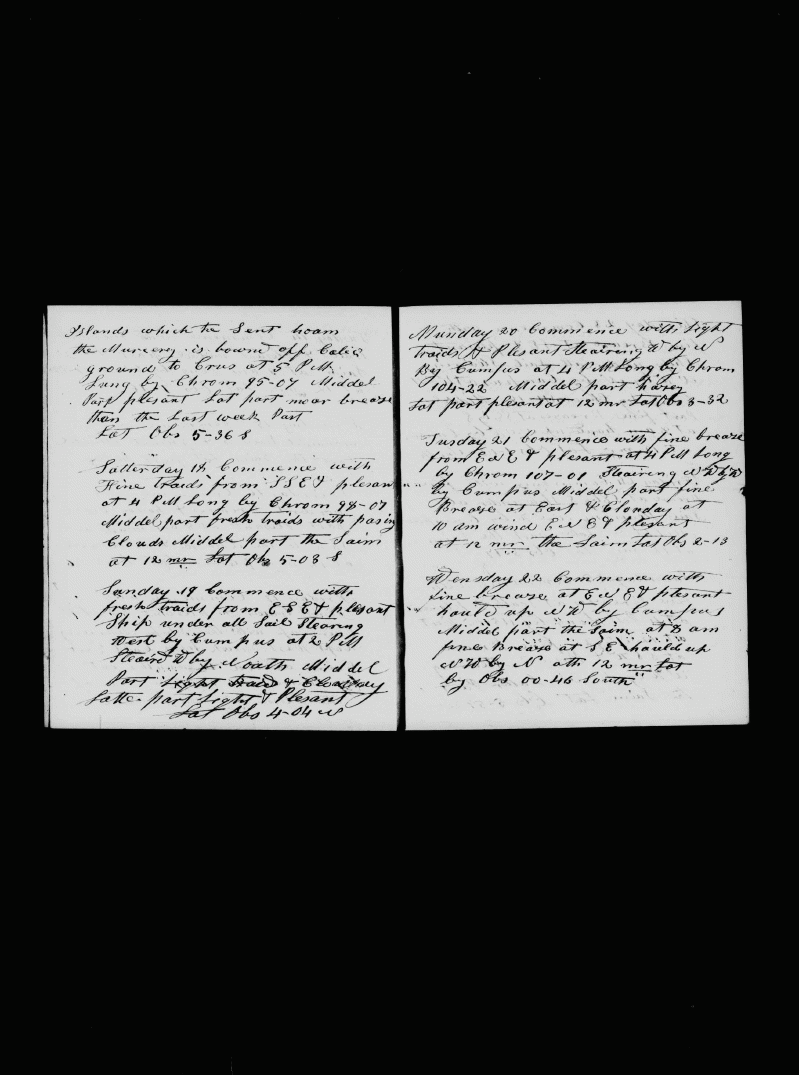 Islands which he Sent hoam
the Murcery is bown off Calie
ground to Crus at 5 P M.
Lung by Chrom 95-07 Middel
Part plesant Lat part moar breaze
than the Last week Part
Lat Obs 5-36 S
Satterday 18 Commence with
Fine traids from SSE & plesant
at 4 P M Long by Chrom 98-07
Middel part fresh traids with pasing
Clouds Middel part the Saim
at 12 mr Lat Obs 5-03 S
Sunday 19 Commence with
fresh traids from E S E & plesant
Ship under all Sail Stearing
West by Cumpus at 2 P M
Steaird W by North Middel
Part Light traid & Cloudy
Latter part Light & Plesant
Lat Obs 4-04 N
Munday 20 Commence with Light
traids & Plesant Stearing W by N
By Cumpus at 4 P M Long by Chrom
104-22 Middel part
Lat part plesant at 12 mr Lat Obs 3-32
Tusday 21 Commence with fine breaze
from E N E & plesant at 4 P M Long
by Chrom 107-01 Stearing N W by W
By Cumpus Middel part fine
Breaze at East & Clouday at
10 am wind E N E & plesant
at 12 mr the Saim Lat Obs 2-13
Wensday 22 Commence with
fine breaze at E N E & plesant
hauld up N W by Cumpus
Middel part the Saim at 8 am
fine Breaze at S E hauld up
N W by N att 12 mr Lat
by Obs 00-46 South